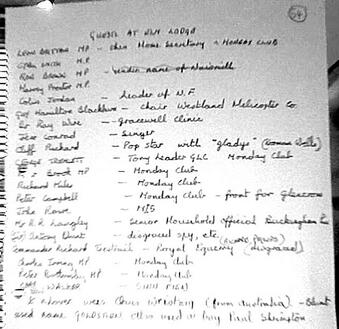 54
GUESTS AT ELM LODGE
LEON BRITTAN MP - then Home Secretary + MONDAY CLUB
CYRIL SMITH M.P.
RON BROWN MP -
Harvey Proctor M.P.
Colin Jordan - Leader of N.F
Guy Hamilton Blackburn - Chair Westland Helicopter Co.
Dr Ray Wire - gracewell clinic
Jess Conrad - Singer
Cliff Richard - Pop star with "gladys"
GEORGE TREMLETT - Tory Leader GLC Monday Club
Brook MP - Monday Club
Richard Miles - Monday Club
Peter Campbell - Monday Club - front for
John Rowe - MI5
Mr R.R. Langley - Senior Household official Buckingham
Sir Antony Blunt - disgraced spy, etc,
Commander Richard Trestrail - Royal Equerry (disgraced)
Charles Irving MP - Monday Club
Peter Bottomley MP - Monday Club
WALKER - SINN FEIN
above uses (from Australia) - Blunt
used name GOLDSTEIN also used a boy Paul